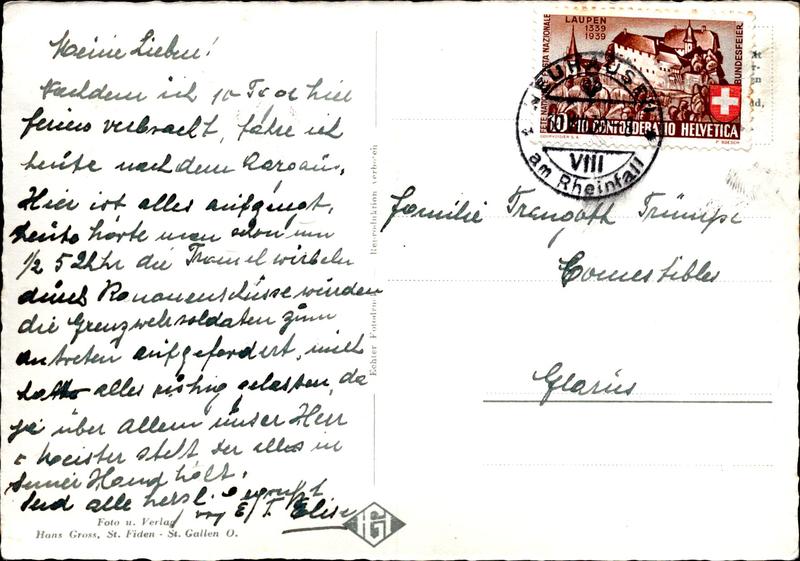 Meine Lieben!
Nachdem ich 10 Tage hier
ferien verbracht, fahre ich
heute nach dem Aargau.
Hier ist alles aufgeregt,
heute hörte man schon um
1/2 5 Uhr die Tromel wirbeln
durch Kanonenschüsse wurden
die Grenzwehrsoldaten zum
antreten aufgefordert, mich
hatte alles ruhig gelassen, da
ja über allem unser Herr
u Meister steht der alles in
seiner Hand hält.
Seid alle herzl. gegrüsst
Elise
Foto u. Verlag
Hans Gross, St. Fiden - St. Gallen O.
HG
Echter Fotodruck Reproduktion verboten
FÊTE NATIONALE FESTA NAZIONALE
LAUPEN
1339
1939
BUNDESFEIER
10+10 CONFOEDERATIO HELVETICA
COURVOISIER S.A.
NEUHAUSEN
VIII
am Rheinfall
Familie Trümpi
Comestibles
Glarus